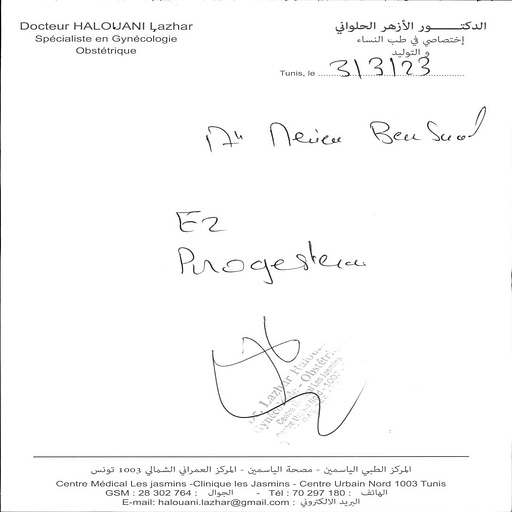 Docteur HALOUANI Lazhar
Spécialiste en Gynécologie
Obstétrique
الدكتـــــــور الأزهر الحلواني
إختصاصي في طب النساء
و التوليد
Tunis, le 3/3/23
Ben
E2
Progesterone
Dr. Lazhar
Gynécologie - Obstétrique
المركز الطبي الياسمين - مصحة الياسمين - المركز العمراني الشمالي 1003 تونس
Centre Médical Les jasmins -Clinique les Jasmins - Centre Urbain Nord 1003 Tunis
GSM : 28 302 764 : الجوال - Tél : 70 297 180 : الهاتف
E-mail: halouani.lazhar@gmail.com : البريد الالكتروني